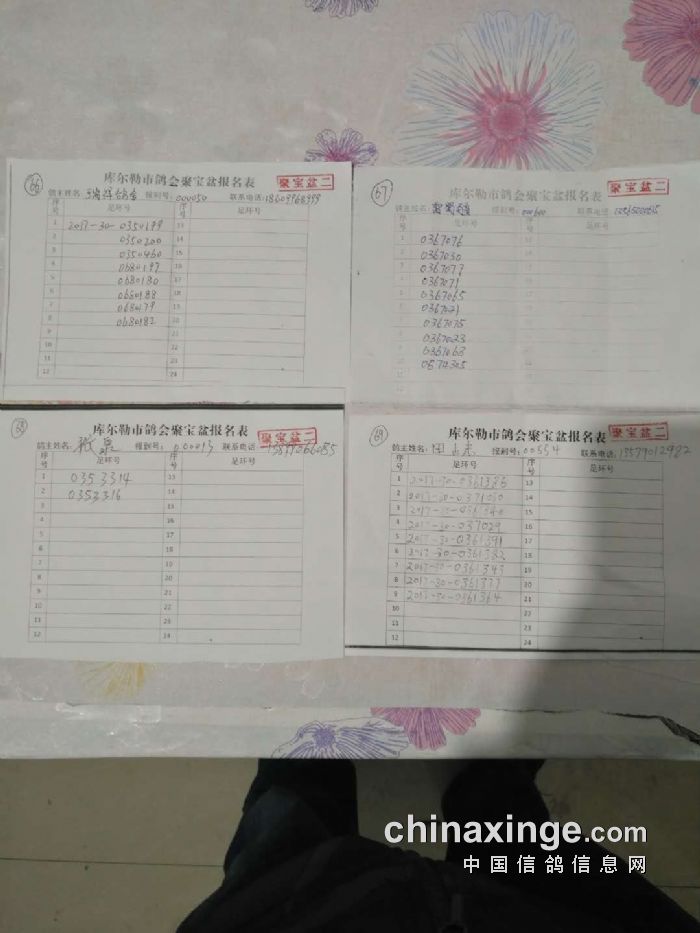 66
库尔勒市鸽会聚宝盆报名表
聚宝盆二
鸽主姓名: 报到号: 000050 联系电话:
序号 足环号 序号 足环号
1 2017-30-0350199 13
2 0350200 14
3 0350460 15
4 0680197 16
5 0680180 17
6 0680188 18
7 0680179 19
8 0680182 20
9 21
10 22
11 23
12 24
67
库尔勒市鸽会聚宝盆报名表
聚宝盆二
鸽主姓名: 报到号: 联系电话:
序号 足环号 序号 足环号
0367076
0367030
0367077
0367071
0367065
0367021
0367075
0367023
0367068
68
库尔勒市鸽会聚宝盆报名表
聚宝盆二
鸽主姓名: 张泉 报到号: 00013 联系电话:
序号 足环号 序号 足环号
1 0353314 13
2 0353316 14
3 15
4 16
5 17
6 18
7 19
8 20
9 21
10 22
11 23
12 24
69
库尔勒市鸽会聚宝盆报名表
聚宝盆二
鸽主姓名: 报到号: 00554 联系电话: 13579012982
序号 足环号 序号 足环号
1 2017-30-0361386 13
2 2017-30-0371030 14
3 15
4 16
5 2017-30-0361391 17
6 2017-30-0361382 18
7 2017-30-0361343 19
8 2017-30-0361377 20
9 2017-30-0361364 21
10 22
11 23
12 24
chinaxinge.com
中国信鸽信息网